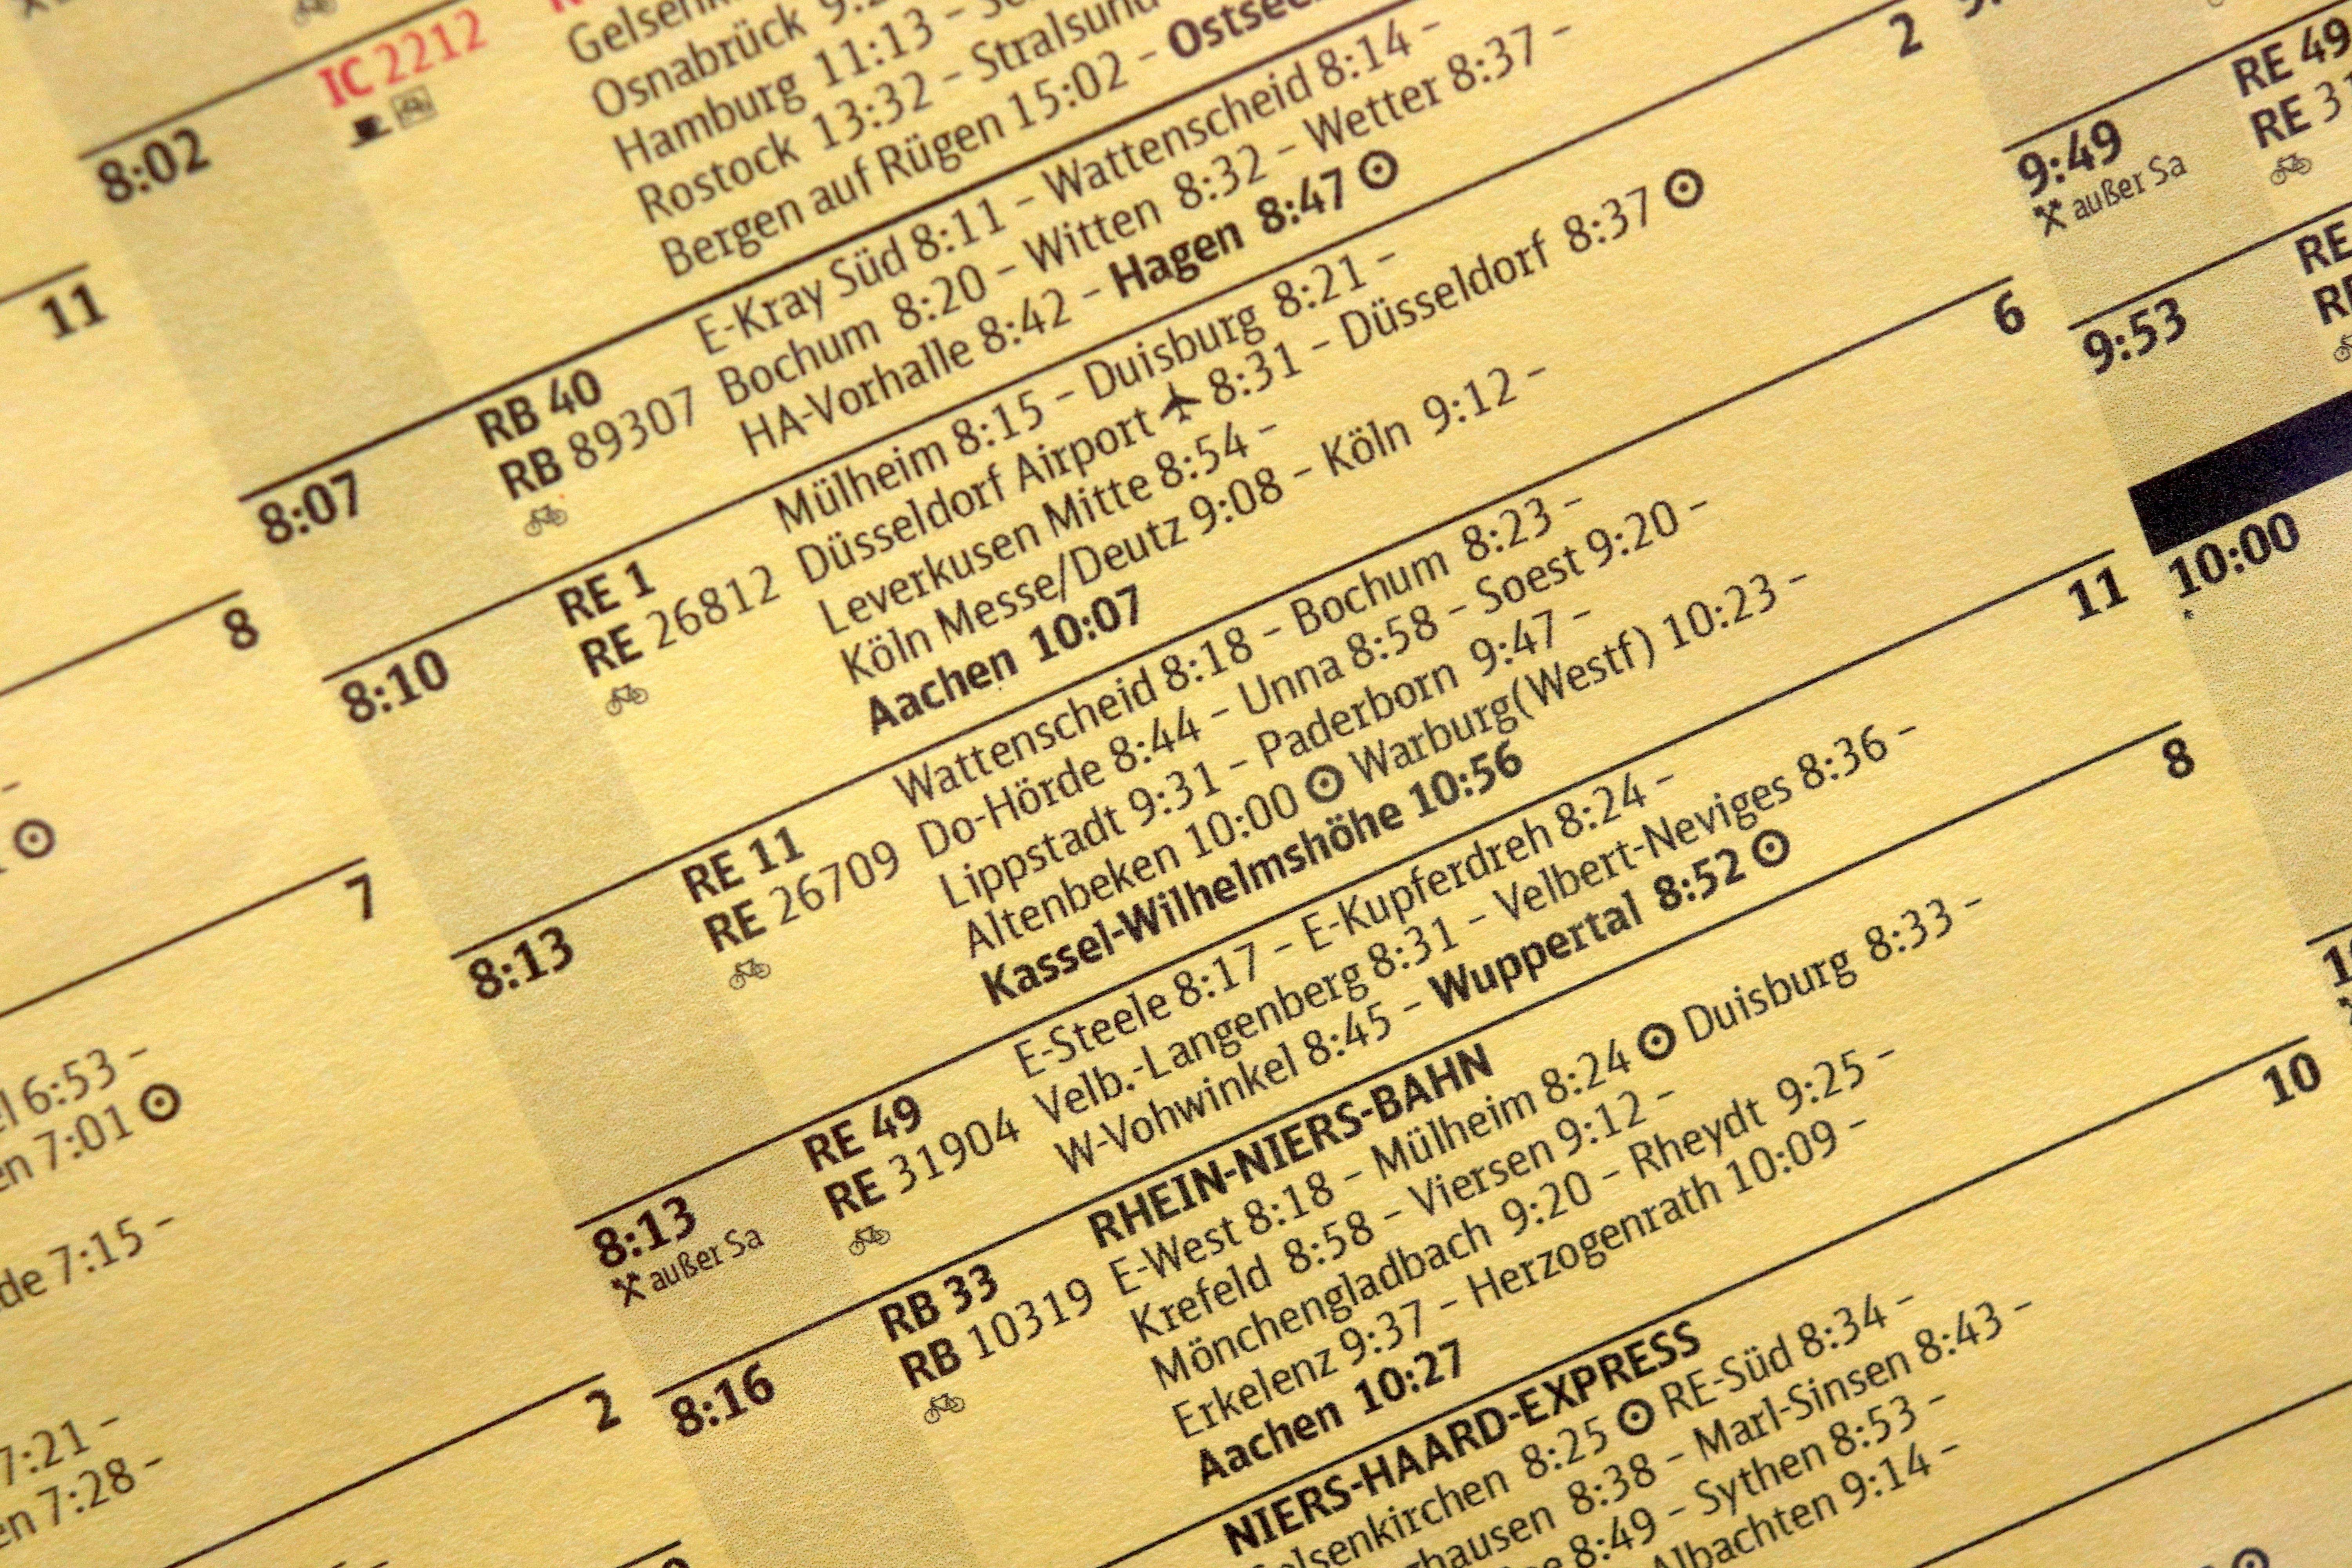 11
8
7
l 6:53 –
en 7:01
de 7:15 –
7:21 –
en 7:28 –
2
8:02
IC 2212
Osnabrück
Hamburg 11:13 –
Rostock 13:32 – Stralsund
Bergen auf Rügen 15:02 –
2
8:07
RB 40
RB 89307
E-Kray Süd 8:11 – Wattenscheid 8:14 –
Bochum 8:20 – Witten 8:32 – Wetter 8:37 –
HA-Vorhalle 8:42 – Hagen 8:47
6
8:10
RE 1
RE 26812
Mülheim 8:15 – Duisburg 8:21 –
Düsseldorf Airport 8:31 – Düsseldorf 8:37
Leverkusen Mitte 8:54 –
Köln Messe/Deutz 9:08 – Köln 9:12 –
Aachen 10:07
11
8:13
RE 11
RE 26709
Wattenscheid 8:18 – Bochum 8:23 –
Do-Hörde 8:44 – Unna 8:58 – Soest 9:20 –
Lippstadt 9:31 – Paderborn 9:47 –
Altenbeken 10:00 Warburg(Westf) 10:23 –
Kassel-Wilhelmshöhe 10:56
8
8:13
außer Sa
RE 49
RE 31904
E-Steele 8:17 – E-Kupferdreh 8:24 –
Velb.-Langenberg 8:31 – Velbert-Neviges 8:36 –
W-Vohwinkel 8:45 – Wuppertal 8:52
10
8:16
RB 33
RB 10319
RHEIN-NIERS-BAHN
E-West 8:18 – Mülheim 8:24 Duisburg 8:33 –
Krefeld 8:58 – Viersen 9:12 –
Mönchengladbach 9:20 – Rheydt 9:25 –
Erkelenz 9:37 – Herzogenrath 10:09 –
Aachen 10:27
NIERS-HAARD-EXPRESS
elsenkirchen 8:25 RE-Süd 8:34 –
hausen 8:38 – Marl-Sinsen 8:43 –
8:49 – Sythen 8:53 –
Albachten 9:14 –
9:49
außer Sa
RE 49
RE 3
9:53
RE
10:00